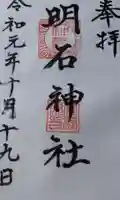 奉拝
明石神社
令和元年十月十九日